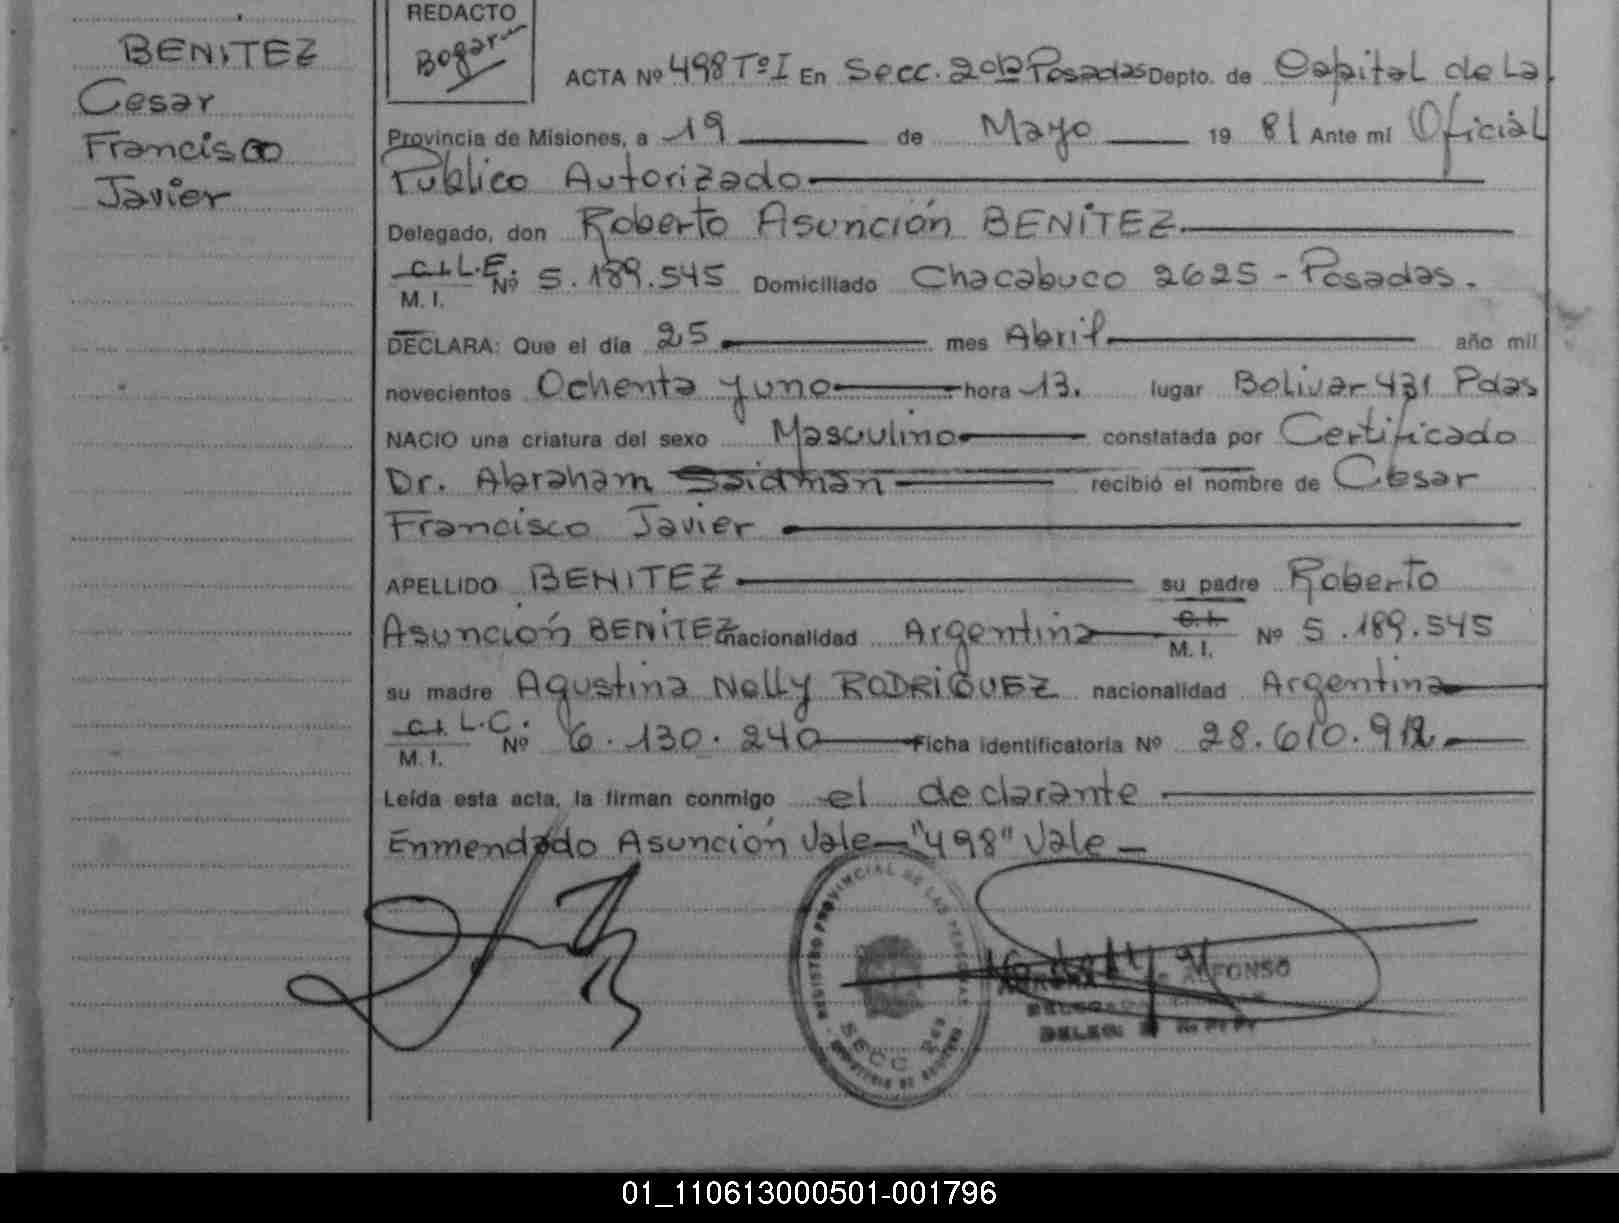 BENITEZ
Cesar
Francisco
Javier
REDACTO
ACTA Nº 498 Tº I En Secc. 2da Posadas Depto. de Capital de La
Provincia de Misiones, a 19 de Mayo 19 81 Ante mí Oficial
Público Autorizado
Delegado, don Roberto Asunción BENITEZ
C.I. L.E. M. I. Nº 5.189.545 Domiciliado Chacabuco 2625 - Posadas.
DECLARA: Que el día 25 mes Abril año mil
novecientos Ochenta y uno hora 13. lugar Bolivar 431 Pdas
NACIO una criatura del sexo Masculino constatada por Certificado
Dr. Abraham Saidman recibió el nombre de Cesar
Francisco Javier
APELLIDO BENITEZ su padre Roberto
Asunción BENITEZ nacionalidad Argentina C.I. M. I. Nº 5.189.545
su madre Agustina Nelly RODRIGUEZ nacionalidad Argentina
C.I. L.C. M. I. Nº 6.130.240 Ficha identificatoria Nº 28.610.912
Leída esta acta, la firman conmigo el declarante
Enmendado Asunción Vale - "498" Vale -
REGISTRO PROVINCIAL DE LAS PERSONAS
SECC 2da
ALFONSO
01_110613000501-001796